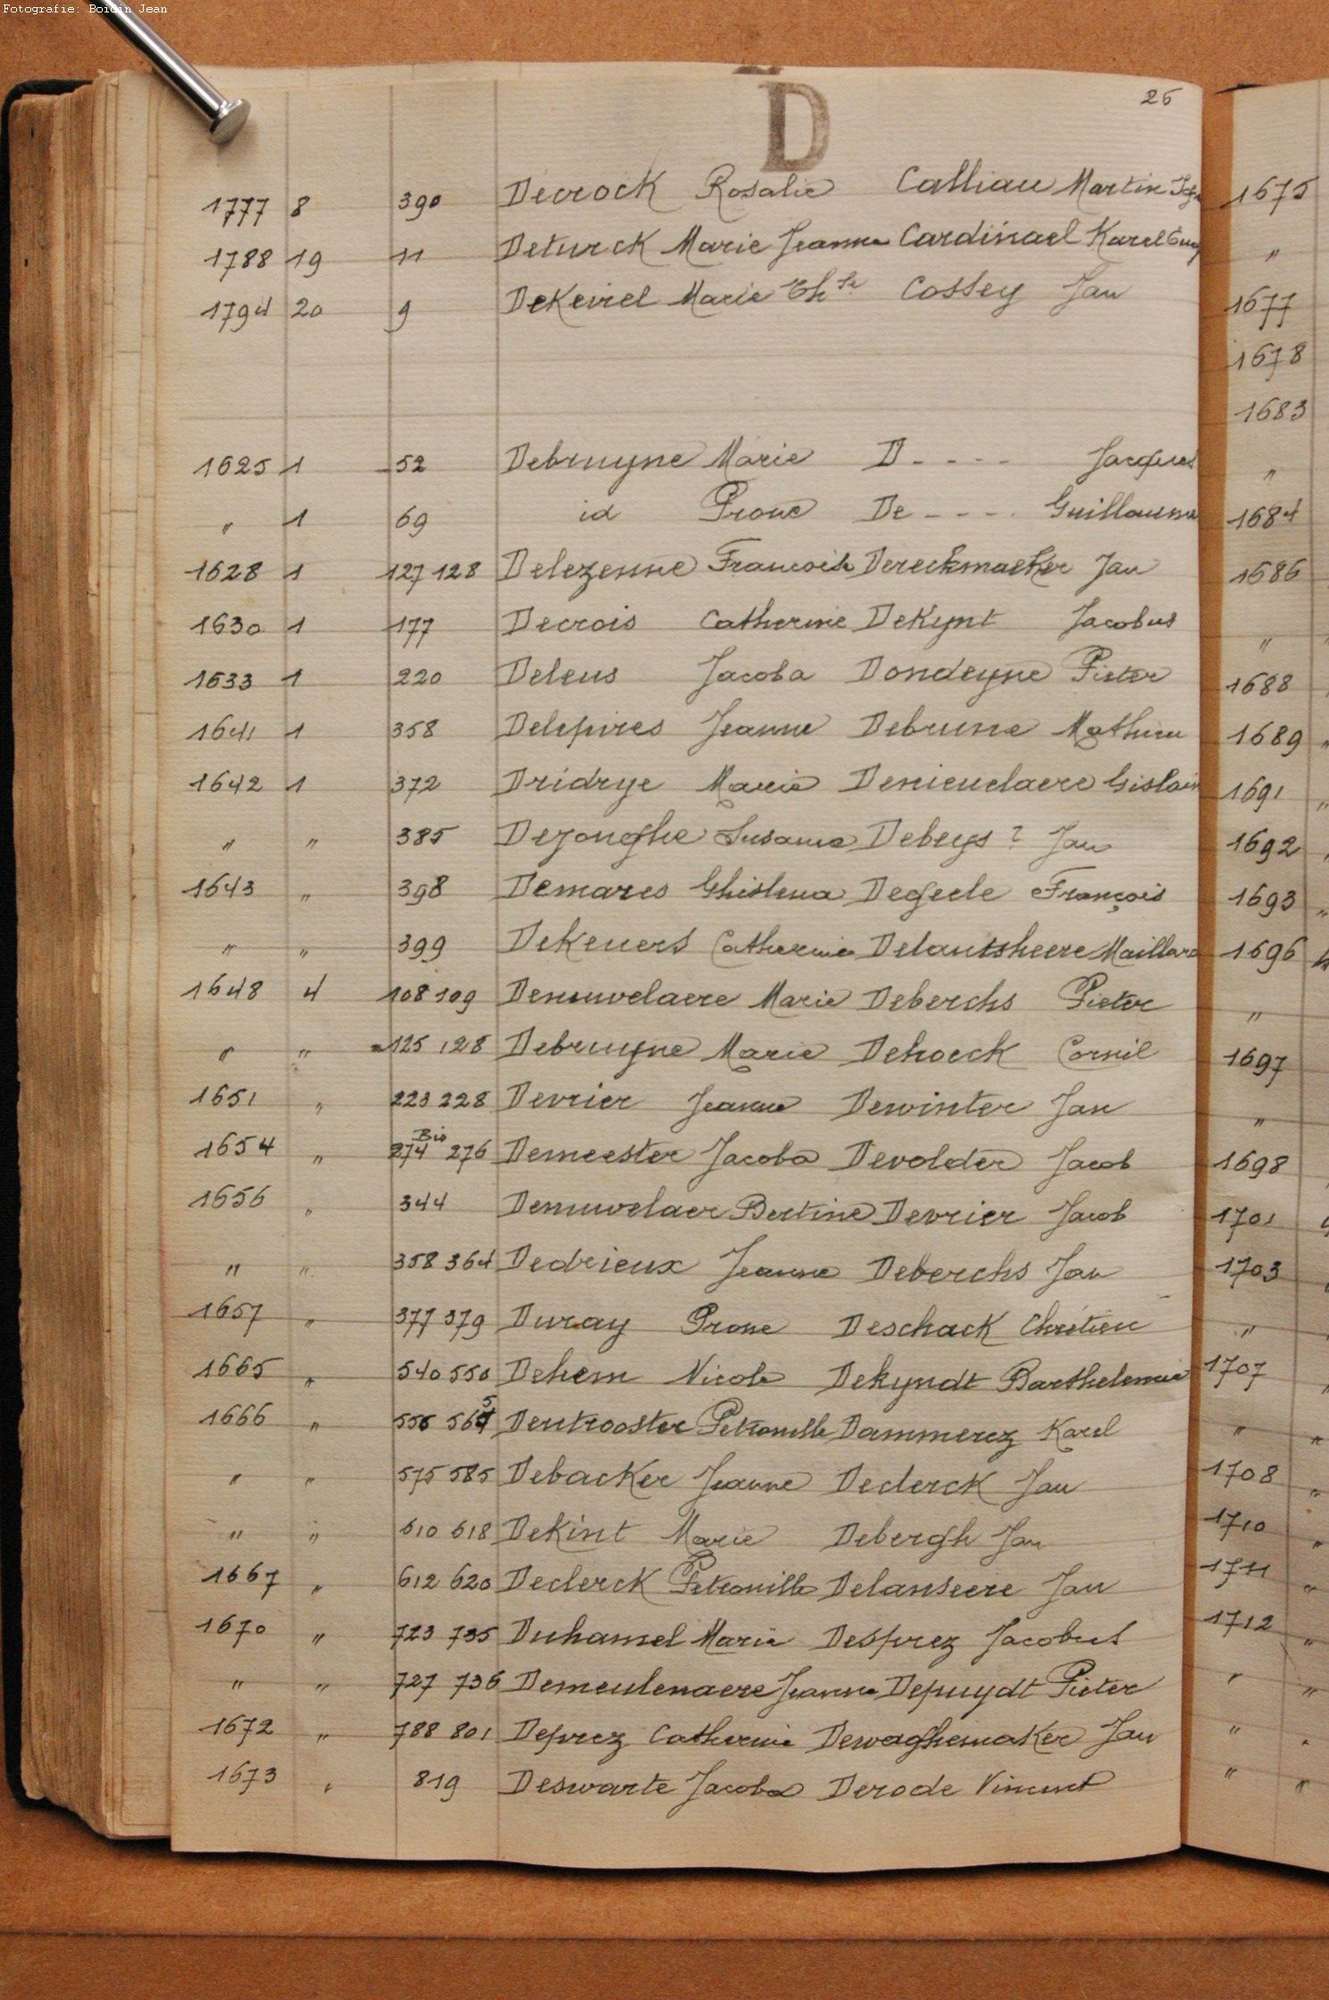 Fotografie: Boidin Jean
D
26
1777 8 390 Decrock Rosalie Calliau Martin
1788 19 11 Deturck Marie Jeanne Cardinael Karel Eug
1794 20 9 DeKeirel Marie Th se Cossey Jan
1625 1 52 Debruyne Marie D---- Jacques
" 1 69 id Prone De---- Guillaume
1628 1 127 128 Delezenne Francoise Dereckmaeker Jan
1630 1 177 Decrois Catherine DeKynt Jacobus
1633 1 220 Deleus Jacoba Dondeyne Pieter
1641 1 358 Delepires Jeanne Debrune Mathieu
1642 1 372 Dridrye Marie Denieuelaere Gislain
" " 385 Dejonghe Susanna Debeys ? Jan
1643 " 398 Demares Ghislena Degeele François
" " 399 DeKeuers Catherine Delantsheere Maillard
1648 4 108 109 Denuwelaere Marie Deberchs Pieter
" " 125 128 Debruyne Marie Dehoeck Cornil
1651 " 223 228 Devrier Jeanne Dewinter Jan
1654 " 274 Bis 276 Demeester Jacoba Devolder Jacob
1656 " 344 Denuwelaer Bertine Devrier Jacob
" " 358 364 Dedrieux Jeanne Deberchs Jan
1657 " 377 379 Duray Prone Deschack Chrétien
1665 " 540 550 Dehem Nicole Dekyndt Barthelemie
1666 " 556 565 Dentrooster Petronille Dammerez Karel
" " 575 585 Debacker Jeanne Declerck Jan
" " 610 618 DeKint Marie Debergh Jan
1667 " 612 620 Declerck Petronille Delanseere Jan
1670 " 723 735 Duhamel Marie Desprez Jacobus
" " 727 736 Demeulenaere Jeanne Depuydt Pieter
1672 " 788 801 Deprez Catherine Dewaghemaker Jan
1673 " 819 Deswarte Jacoba Derode Vincent
1675
"
1677
1678
1683
"
1684
1686
"
1688
1689 "
1691 "
1692
1693 "
1696
"
1697
"
1698
1701
1703
"
1707
" "
1708 "
1710 "
1711 "
1712 "
" "
"
" "